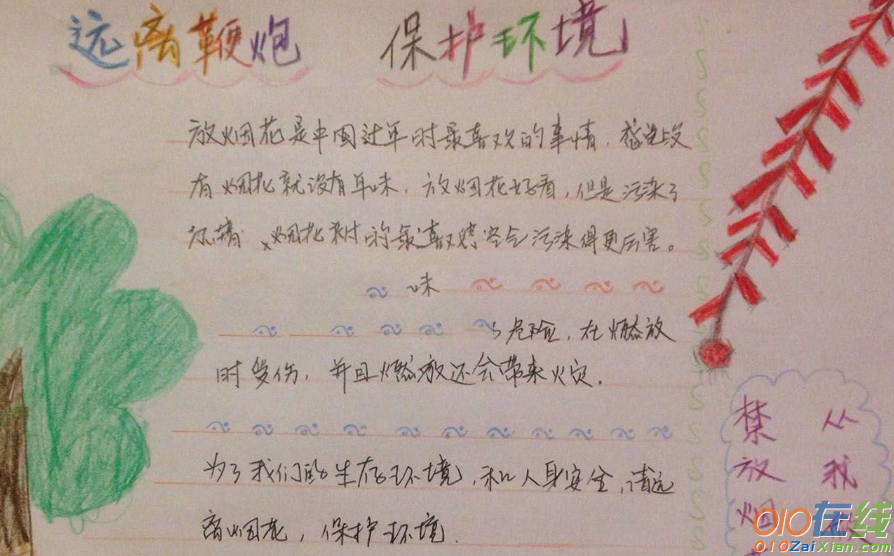 远离鞭炮 保护环境
放烟花是中国过年时最喜欢的事情,感觉没
有烟花就没有年味,放烟花好看,但是污染了
环境
烟花
的
会污染得更厉害。
味
危险,在燃放
时受伤,并且燃放还会带来火灾.
为了我们的生存环境,和人身安全,请远
离烟花,保护环境.
从我
禁放烟
010在线
010ZaiXian.com